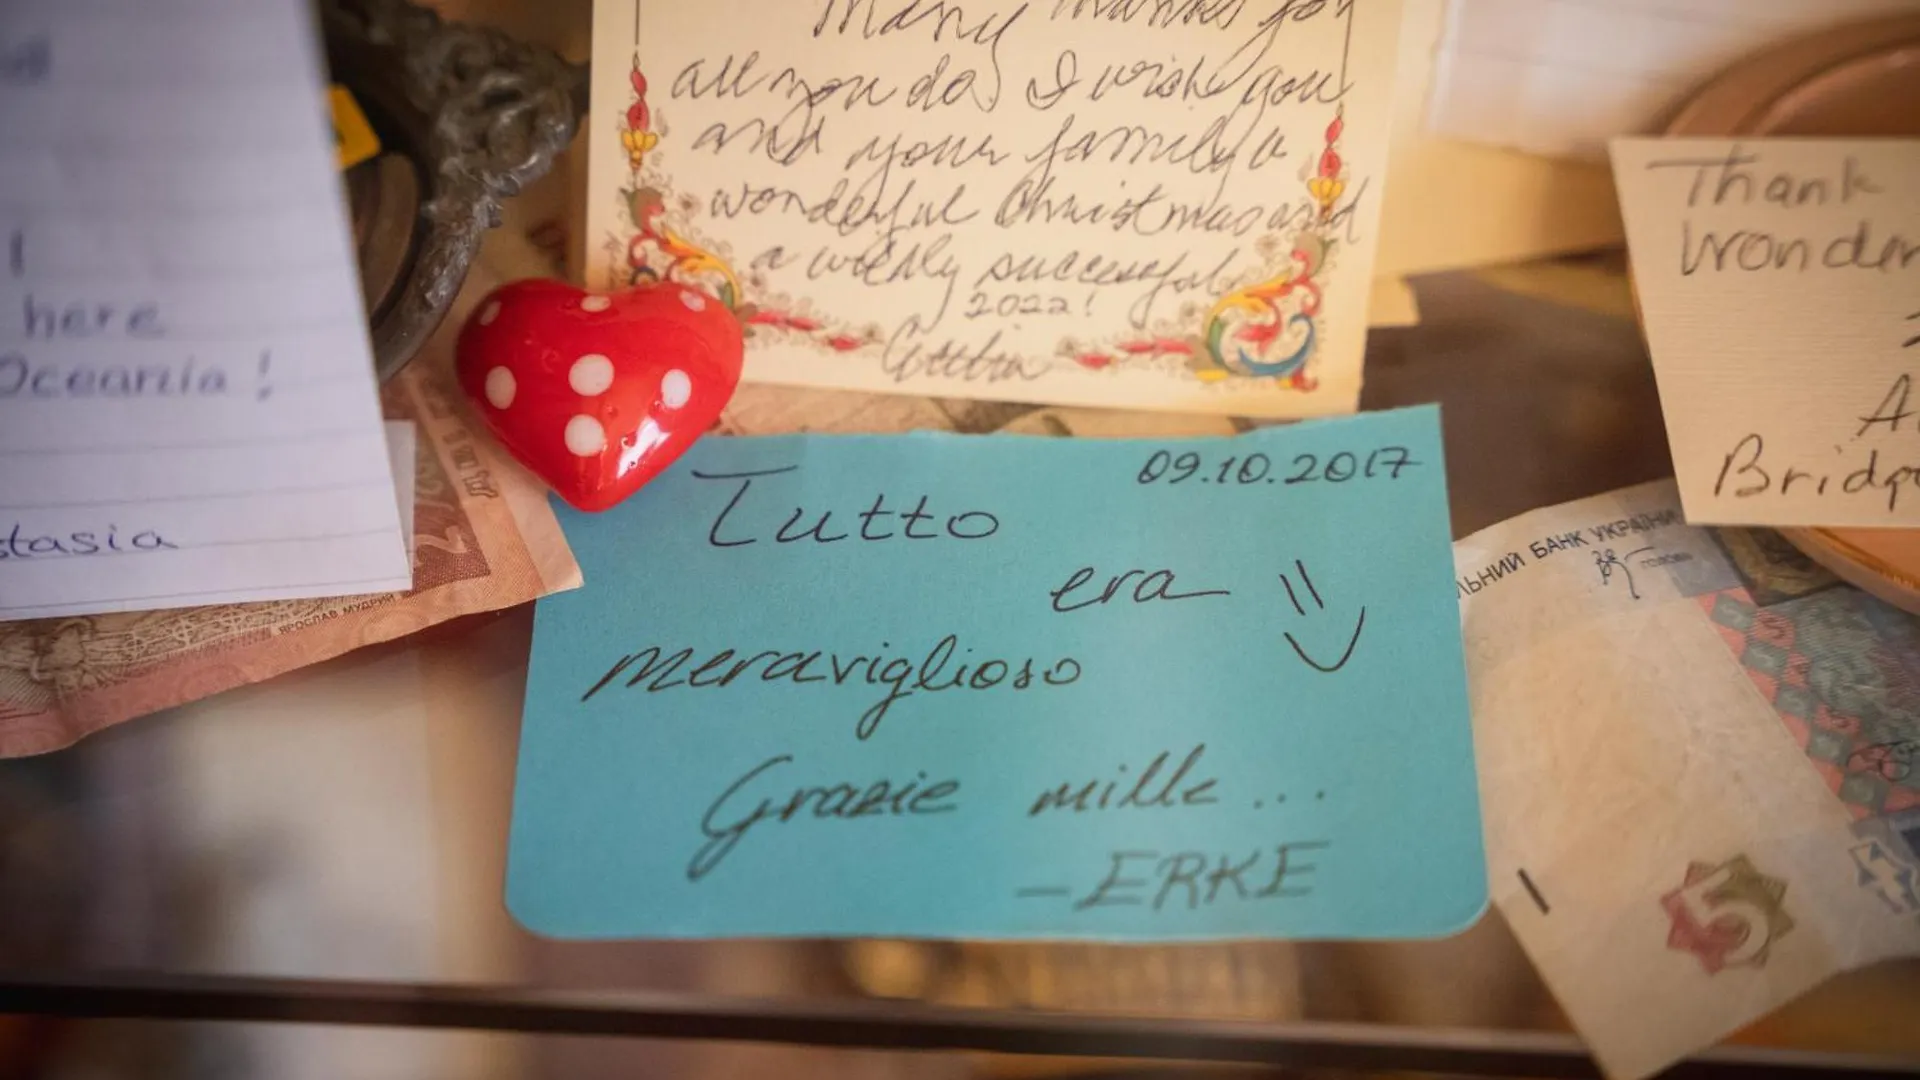 I
here
Oceania!
stasia
ЯРОСЛАВ МУДРИЙ
Many thanks for
all you do. I wish you
and your family a
wonderful Christmas and
a wildly successful
2022!
09.10.2017
Tutto
era
meraviglioso
Grazie mille...
-ERKE
Thank
Wonder
A
Bridge
ЛЬНИЙ БАНК УКРАЇНИ
5